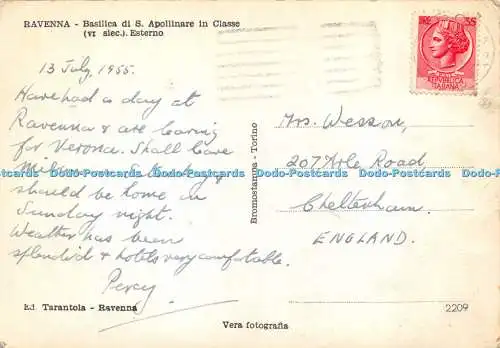 RAVENNA - Basilica di S. Apollinare in Classe
(VI siec.) Esterno
13 July, 1955.
Have had a day at
Ravenna & are leaving
for Verona. Shall leave
Milan on Saturday &
should be home on
Sunday night.
Weather has been
splendid & hotels very comfortable.
Percy
Ed. Tarantola - Ravenna
Bromostampa - Torino
Vera fotografia
35
REPVBBLICA
ITALIANA
Mrs. Wesson,
207 Arle Road
Cheltenham.
ENGLAND.
2209
Dodo-Postcards Dodo-Postcards Dodo-Postcards Dodo-Postcards